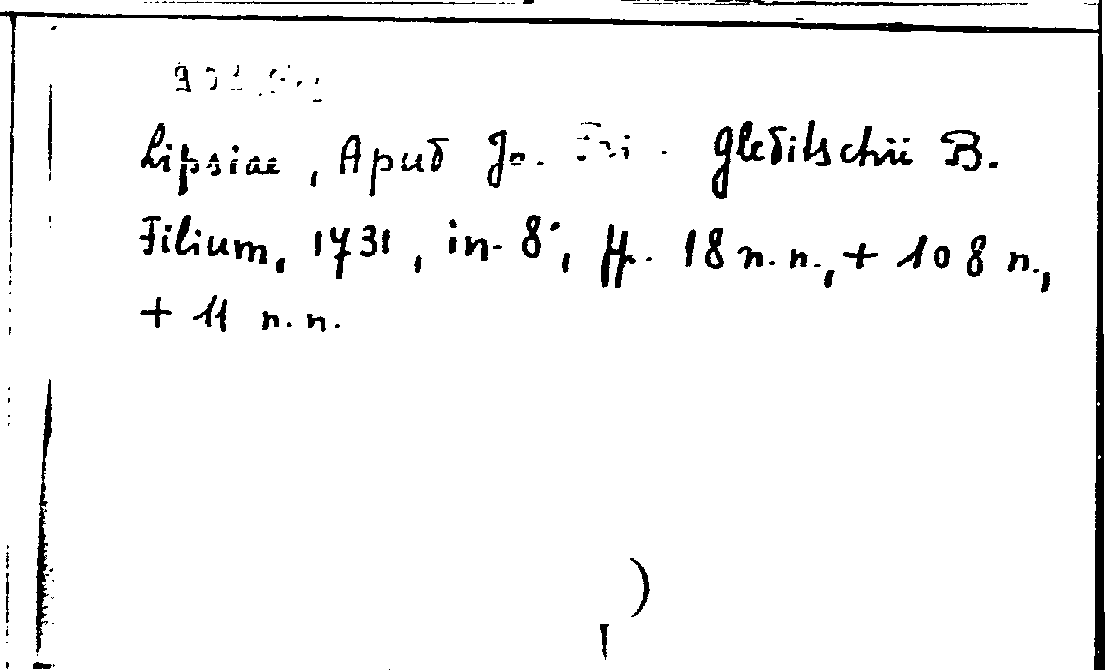 Lipsiae, Apud Jo. Fri. Gleditschii B.
Filium, 1731, in-8°, ff. 18 n.n., + 108 n.,
+ 11 n.n.